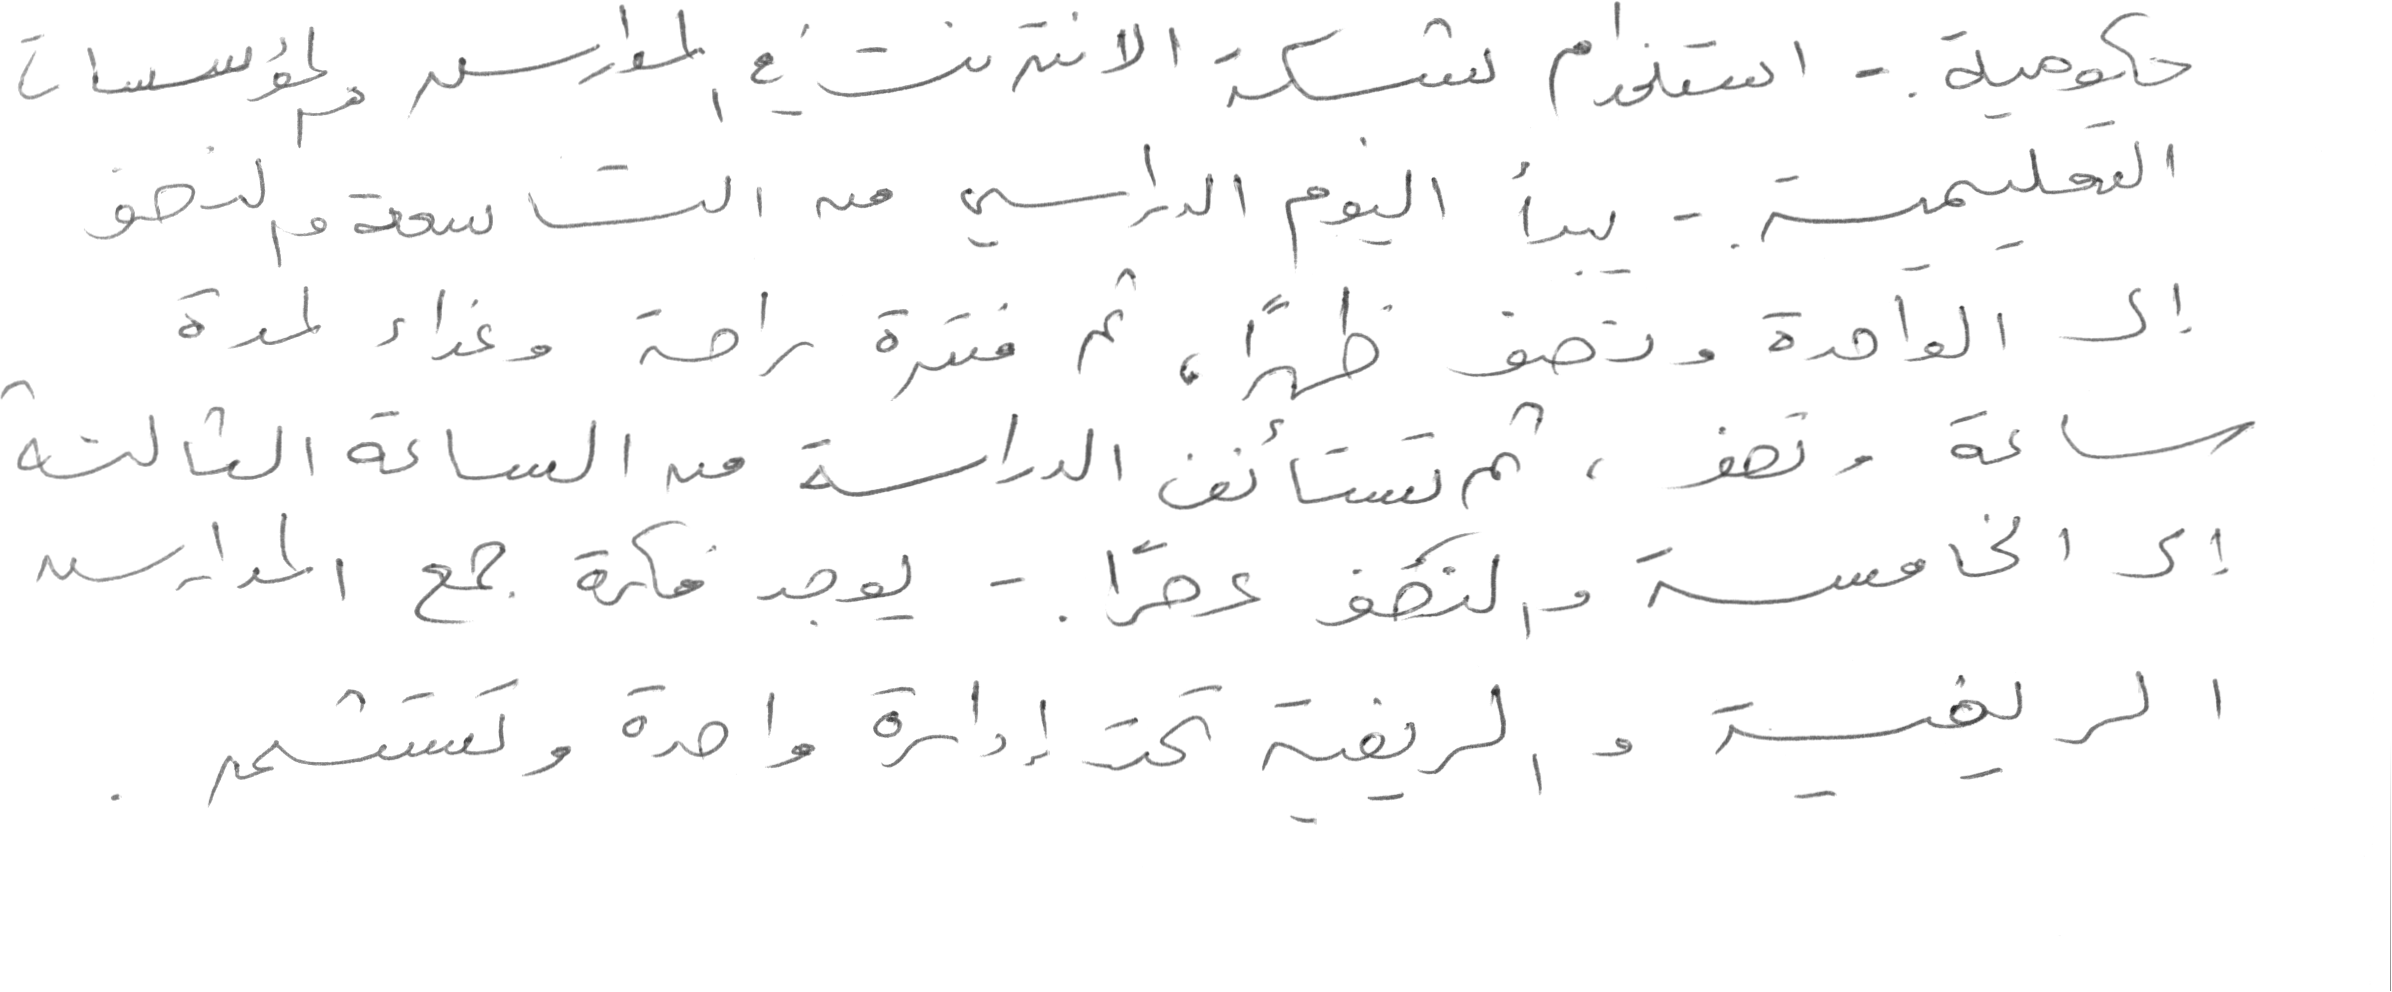 حكومية. - استخدام شبكة الانترنت في المدارس والمؤسسات
التعليمية. - يبدأ اليوم الدراسي من التاسعة والنصف
إلى الواحدة ونصف ظهرًا، ثم فترة راحة وغذاء لمدة
ساعة ونصف، ثم تستأنف الدراسة من الساعة الثالثة
إلى الخامسة والنصف عصرًا. - يوجد فكرة جمع المدارس
الريفية والريفية تحت إدارة واحدة وتستثمر.